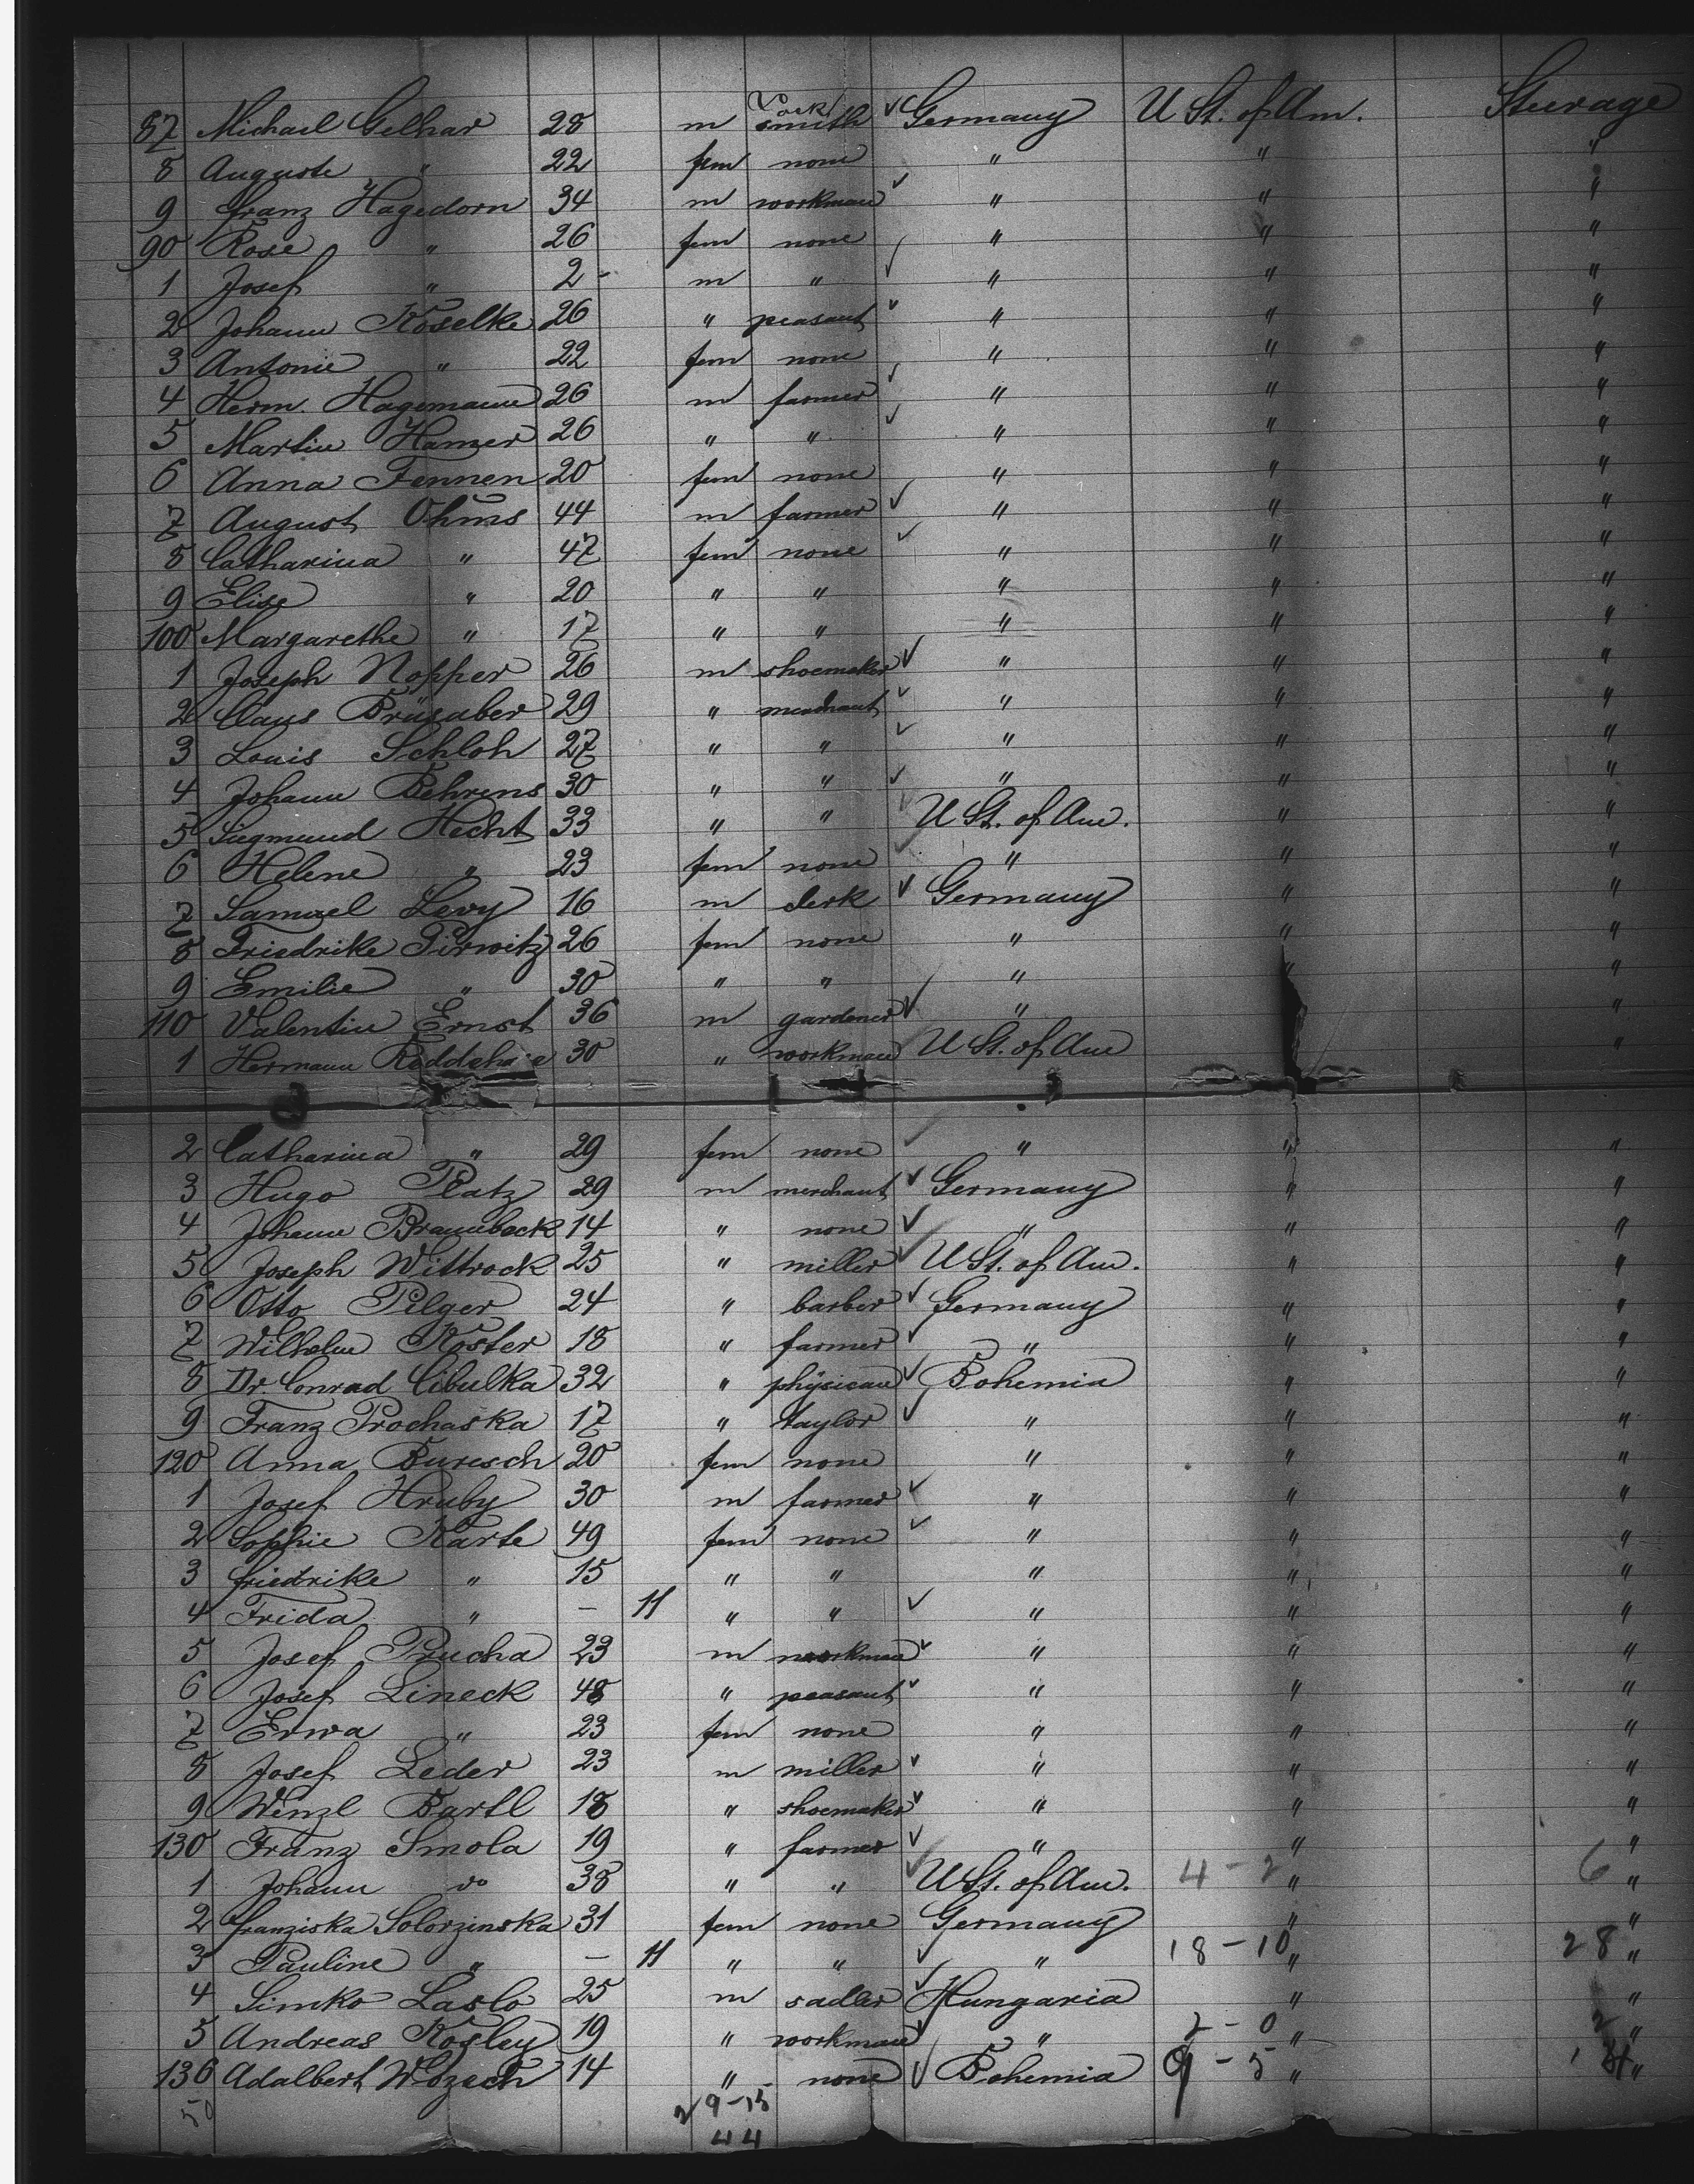 87 Michael Gelhar 28 m Locksmith Germany U St. of Am. Steerage
8 Auguste " 22 fem none " " "
9 Franz Hagedorn 34 m workman " " "
90 Rose " 26 fem none " " "
1 Josef " 2 - m " " " "
2 Johann Köselke 26 " peasant " " "
3 Antonie " 22 fem none " " "
4 Herm. Hagemann 26 m farmer " " "
5 Martin Hamer 26 " " " " "
6 Anna Fennen 20 fem none " " "
7 August Ohms 44 m farmer " " "
8 Catharina " 47 fem none " " "
9 Elise " 20 " " " " "
100 Margarethe " 17 " " " " "
1 Joseph Nopper 26 m shoemaker " " "
2 Claus Brüsaber 29 " merchant " " "
3 Louis Schloh 27 " " " " "
4 Johann Behrens 30 " " " " "
5 Sugmund Hecht 33 " " U St. of Am. " "
6 Helene " 23 fem none " " "
7 Samuel Levy 16 m clerk Germany " "
8 Friedrike Pirwitz 26 fem none " " "
9 Emilie " 30 " " " " "
110 Valentin Ernst 36 m gardener " " "
1 Hermann 30 " workman U St. of Am "
2 Catharina " 29 fem none " " "
3 Hugo Platz 29 m merchant Germany " "
4 Johann Brambeck 14 " none " " "
5 Joseph Wittrock 25 " miller U St. of Am. " "
6 Otto Pilger 24 " barber Germany " "
7 Wilhelm Köster 18 " farmer " " "
8 Dr. Conrad Cibulka 32 " physican Bohemia " "
9 Franz Prochaska 17 " taylor " " "
120 Anna Buresch 20 fem none " " "
1 Josef Hruby 30 m farmer " " "
2 Sophie Karte 49 fem none " " "
3 Friedrike " 15 " " " " "
4 Frida " - 11 " " " " "
5 Josef Prucha 23 m workman " " "
6 Josef Lineck 48 " peasant " " "
7 Erwa " 23 fem none " " "
8 Josef Leder 23 m miller " " "
9 Wenzl Bartl 18 " shoemaker " " "
130 Franz Smola 19 " farmer " " "
1 Johann do 38 " " U St. of Am. 4 - 2 " 6 "
2 Franziska Solorzinska 31 fem none Germany " "
3 Pauline " - 11 " " " 18 - 10 " 28 "
4 Simko Laslo 25 m sadler Hungaria " "
5 Andreas Kosley 19 " workman " 2 - 0 " 2 "
136 Adalbert Wozech 14 " none Bohemia 9 - 5 " "
50 29-15
44